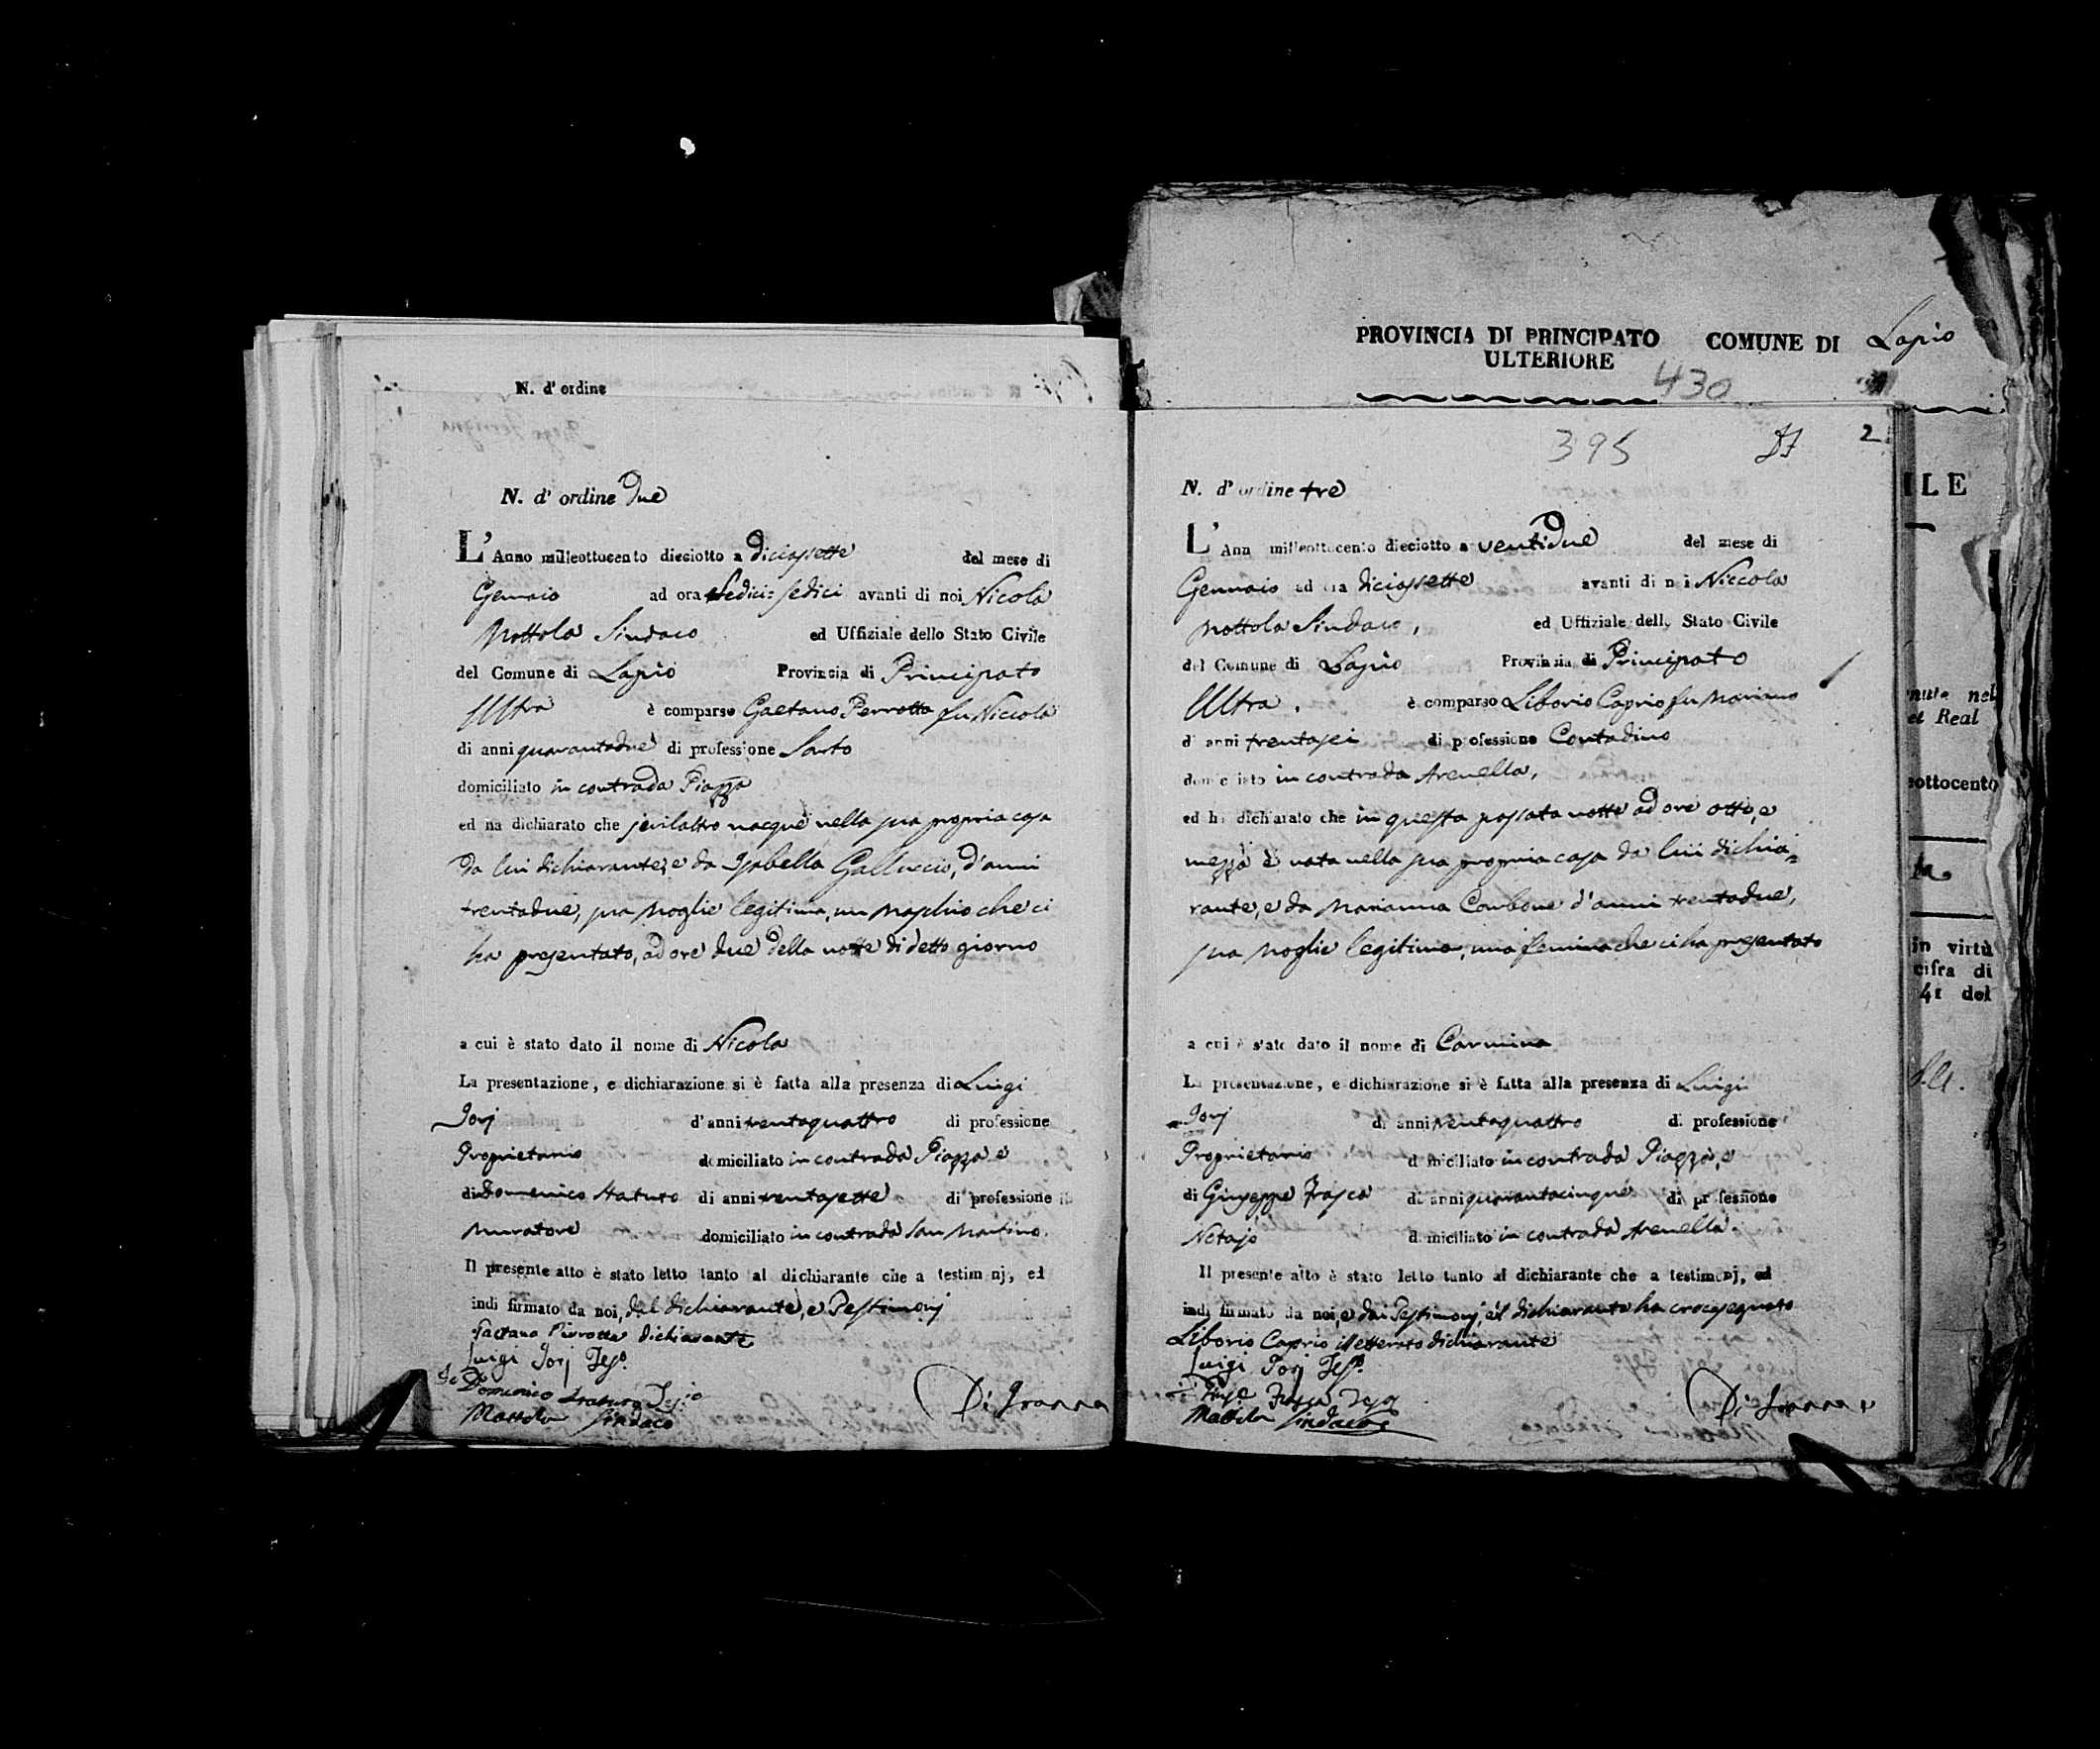 N. d' ordine
N. d' ordine Due
L' Anno milleottocento dieciotto a diciassette del mese di
Gennaio ad ora sedici sedici avanti di noi Nicola
Mottola Sindaco ed Uffiziale dello Stato Civile
del Comune di Lapio Provincia di Principato
Ultra è comparso Gaetano Perrotta fu Niccola
di anni quarantadue di professione Sarto
domiciliato in contrada Piazza
ed ha dichiarato che jerilaltro nacque nella sua propria casa
da lui dichiarante, e da Isabella Galluccio, d'anni
trentadue, sua moglie legitima, un maschio che ci
ha presentato, ad ore due della notte di detto giorno
a cui è stato dato il nome di Nicola
La presentazione, e dichiarazione si è fatta alla presenza di Luigi
Jorj d'anni trentaquattro di professione
Proprietario domiciliato in contrada Piazza e
di Domenico Staturo di anni trentasette di professione
Muratore domiciliato in contrada San Martino.
Il presente atto è stato letto tanto al dichiarante che a testimonj, ed
indi firmato da noi, dal dichiarante, e Testimonj
Gaetano Perrotta dichiarante
Luigi Jorj Tes°.
Domenico Staturo
Mottola Sindaco
PROVINCIA DI PRINCIPATO COMUNE DI Lapio
ULTERIORE
430
395 2
N. d' ordine tre
L' Ann milleottocento dieciotto a ventidue del mese di
Gennaio ad ora diciassette avanti di noi Niccola
Mottola Sindaco, ed Uffiziale dello Stato Civile
del Comune di Lapio Provincia di Principato
Ultra. è comparso Liborio Caprio fu Mariano
di anni trentasei di professione Contadino
domiciliato in contrada Arenella,
ed ha dichiarato che in questa passata notte ad ore otto, e
mezza è nata nella sua propria casa da lui dichia=
rante, e da Marianna Carbone d'anni trentadue,
sua moglie legitima, una femina che ci ha presentato
a cui è stato dato il nome di Carmina
La presentazione, e dichiarazione si è fatta alla presenza di Luigi
Jorj di anni trentaquattro di professione
Proprietario domiciliato in contrada Piazza, e
di Giuseppe Frasca di anni quarantacinque di professione
Notajo domiciliato in contrada Arenella.
Il presente atto è stato letto tanto al dichiarante che a testimonj, ed
indi firmato da noi, e dai Testimonj, e il dichiarante ha crocesegnato
Liborio Caprio illetterato dichiarante
Luigi Jorj Tes°.
Frasca
Mottola Sindaco
ILE
nute nel
et Real
eottocento
in virtù
cifra di
41 del